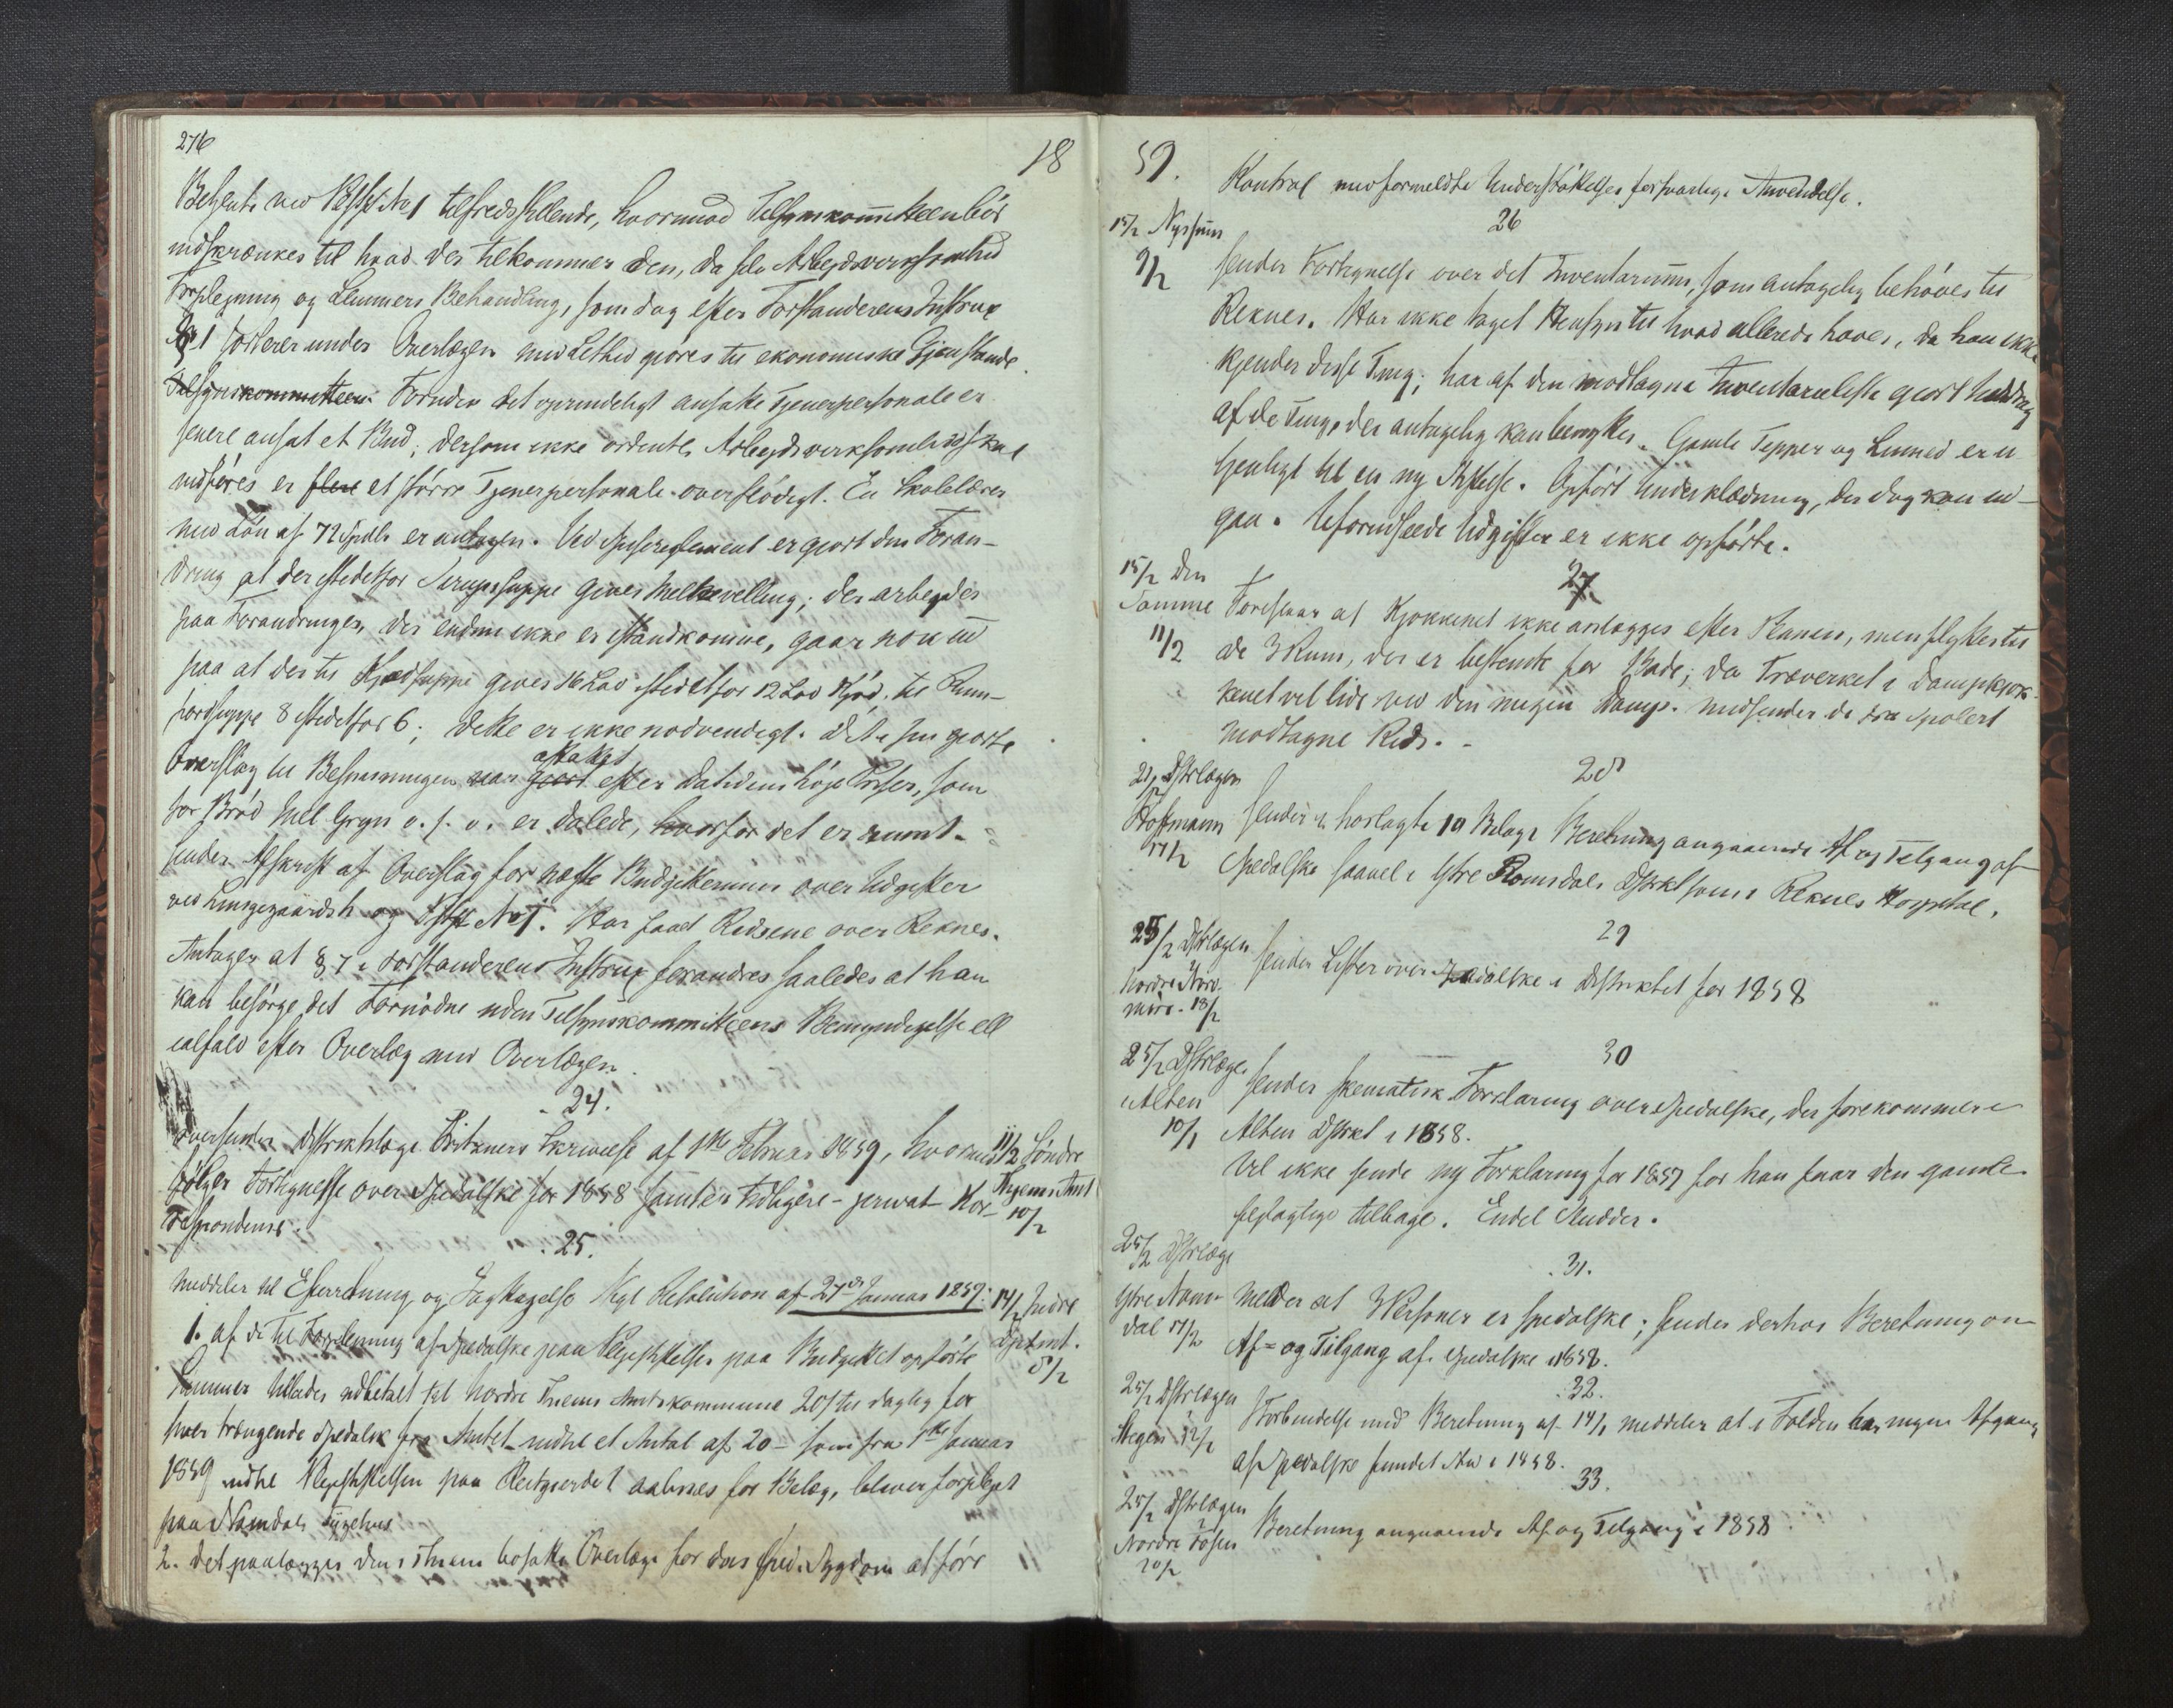 276
18
Betjente ved Plstft No 1 tilfredsstillende, hvorimod Tilsynskommitteen bör
indskrænkes til hvad der tilkommer den, da selv Arbejdsverksomhed
Forplejning og Lemmers Behandling, som dog efter Forstanderens Instrux
§ 1 sorterer under Overlægen med Lethed gjöres til ekonomiske Gjenstande.
Tilsynskommitteen. Foruden det oprindeligt ansatte Tjenerpersonale er
senere ansat et Bud; dersom ikke ordentl. Arbejdsverksomhed skal
indföres er flere et större Tjenerpersonale overflödigt. En Skolelærer
med Lön af 72 Spdlr er antagen. Ved Spisereglement er gjort den Foran-
dring at der istedetfor Sirupssuppe gives Melkevelling; der arbejdes
paa Forandringer, der endnu ikke er istandkomne, gaar nok ud
paa at der til Kjödsuppe gives 16 Lod istedetfor 12 Lod Kjöd, til Rum-
fordsuppe 8 istedetfor 6; dette er ikke nodvendigt. Det
Overslag til Bespisningen var gjort efter Datidens höje Priser, som
for Bröd Mel Gryn o. s. v. er dalede, hvorfor det er rumt.
sender Afskrift af Overslag for næste Budgettermin over Udgifter
ved Lungegaardsh. og Plstft No 1. Har faaet Ridsene over Reknes.
Antager at § 7 i Forstanderens Instrux forandres saaledes at han
kan besörge det Fornödne uden Tilsynskommitteens Bemyndigelse ell
ialfald efter Overlæg med Overlægen.
24.
oversender Distriktslæge Skrivelse af 1ste Februar 1859, hvormed
fölger Fortegnelse over Spedalske for 1858 samt en tidligere privat Kor-
respondense.
11/2 Söndre
Thjems Amt
10/2
25.
meddeler til Efterretning og Iagttagelse Kgl Resolution af 27de Januar 1859:
14/2 Indre
Dptmt.
8/2
1. af de til Forplejning af Spedalske paa Plejestiftelser paa Budgettet opförte
Summer tillades udbetalt til Nordre Thjems Amtskommune 20 s daglig for
hver trængende Spedalsk fra Amtet indtil et Antal af 20 som fra 1ste Januar
1859 indtil Plejestiftelsen paa Reitgjerdet aabnes for Belæg, bliver forplejet
paa Namdals Sygehus
2. Det paalægges den i Thjem bosatte Overlæge for den sped. Sygdom at före
59.
Kontrol med formeldte Understöttelses forsvarlige Anvendelse.
26
15/2 Nyssum
9/2
sender Fortegnelse over det Inventarium, som antagelig behöves til
Reknes. Har ikke taget Hensyn til hvad allerede haves, da han ikke
kjender disse Ting; har af den modtagne Inventarieliste gjort Uddrag
af de Ting, der antagelig kan benyttes. Gamle Tepper og Linned er u-
tjenligt til en ny Stiftelse. Opfört Underklædning, der dog kan ud-
gaa. Uforudseede Udgifter er ikke opförte.
27.
15/2 Den
Samme
11/2
Foreslaar at Kjökkenet ikke anlægges efter Planen, men flyttes til
de 3 Rum, der er bestemte for Bade; da Træverket i Dampkjök-
kenet vil lide ved den megen Damp. medsender de fra Spolert
modtagne Rids.
28
21/2 Dstrlægen
Hoffmann
17/2
sender i hoslagte 19 Bilage Beretning angaaende Af og Tilgang af
Spedalske saavel i Ytre Romsdals Dstrkt som i Reknes Hospital.
29
25/2 Dstrlægen
Nordre Nord-
möre. 18/2
sender Lister over Spedalske i Distriktet for 1858
30
25/2 Dstrlæge
i Alten
10/1
sender skematisk Forklaring over Spedalske, der forekommer i
Alten Dstrkt i 1858.
Vil ikke sende ny Forklaring for 1857 for han faar den gamle
fejlagtige tilbage. Endel Sludder.
31.
25/2 Dstrlæge
Ytre Nam-
dal 17/2
Melder at 3 Personer er spedalske; sender derhos Beretning om
Af= og Tilgang af Spedalske i 1858.
32.
25/2 Dstrlægen
Stegen 12/2
I Forbindelse med Beretning af 14/1 meddeler at i Folden har ingen Afgang
af Spedalske fundet Sted i 1858.
33.
25/2 Dstrlægen
i Nordre Fosen
20/2
Beretning angaaende Af og Tilgang i 1858.